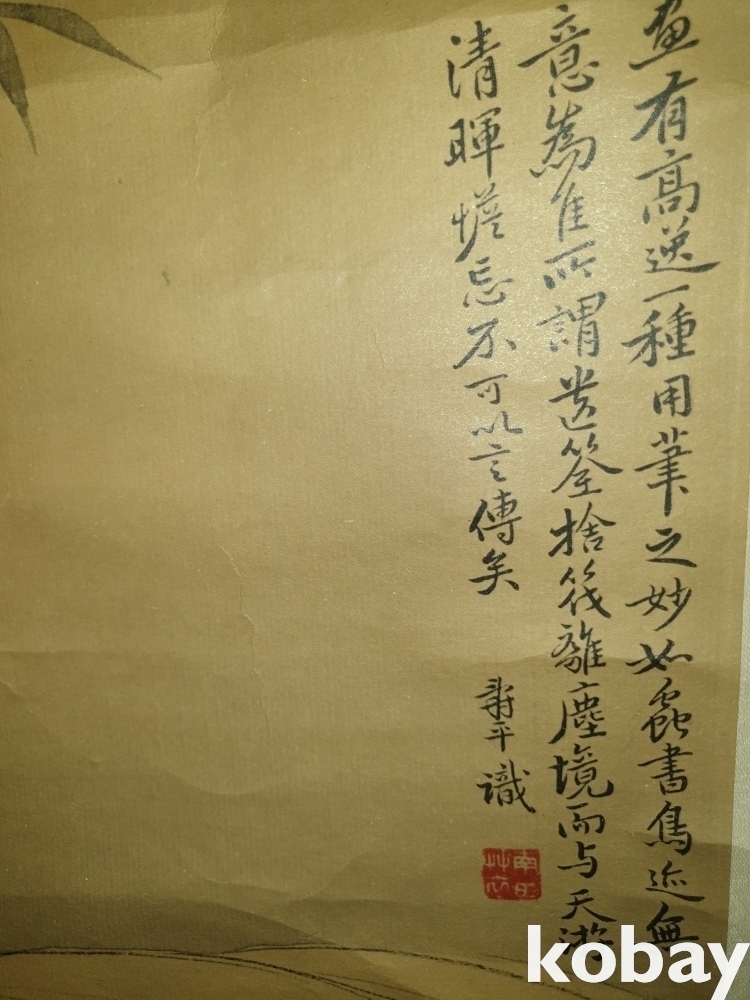 畫有高逸一種用筆之妙如蟲書鳥迹無
意爲佳所謂遺筌捨筏離塵境而与天游
清暉憺忘不可以言傳矣
壽平識
南田
艸衣
kobay